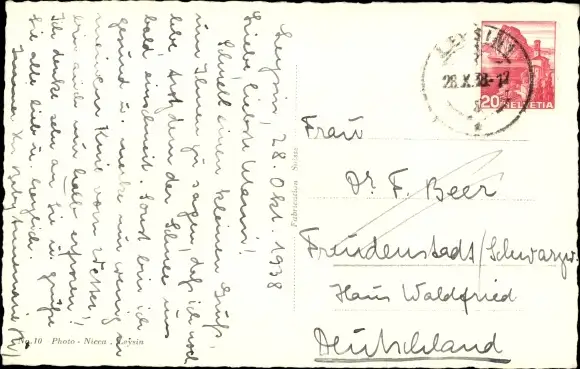 Leysin, 28. Okt. 1938
Liebe, liebste Mama!
Schnell einen kleinen Gruß,
um Ihnen zu sagen, daß ich noch
lebe, trotzdem der Schnee uns
bald einschneit. Sonst bin ich
gesund u. merke ein wenig an
meinem Knie vom Wetter!
Ich denke sehr an Sie u. grüße
Sie alle lieb u. herzlich.
Immer Ihr
No. 10 Photo - Nicca, Leysin
Fabrication Suisse
LEYSIN
28.X.38-17
20 HELVETIA
Frau
Dr. F. Beer
Freudenstadt/Schwarzw.
Haus Waldfried
Deutschland